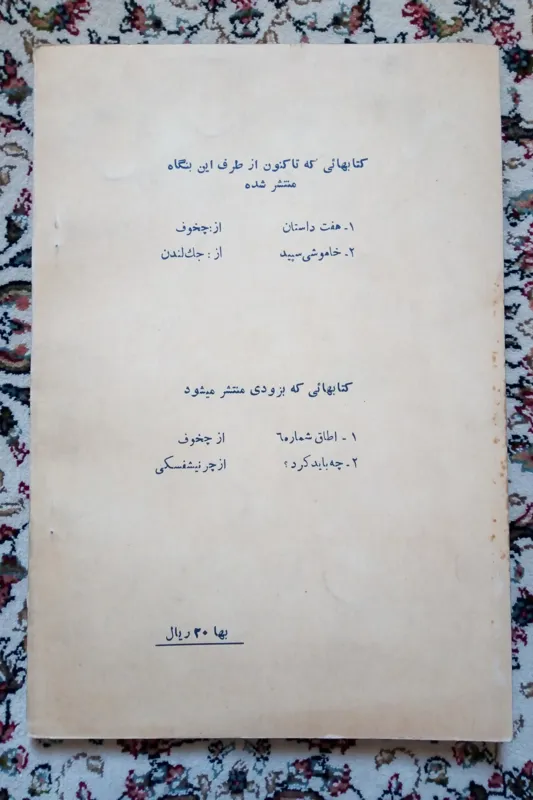 کتابهائی که تاکنون از طرف این بنگاه
منتشر شده
۱ـ هفت داستان از:چخوف
۲ـ خاموشی سپید از : جك لندن
کتابهائی که بزودی منتشر میشود
۱ ـ اطاق شماره ٦ از چخوف
۲ـ چه باید کرد ؟ از چرنیشفسکی
بها ۲۰ ریال